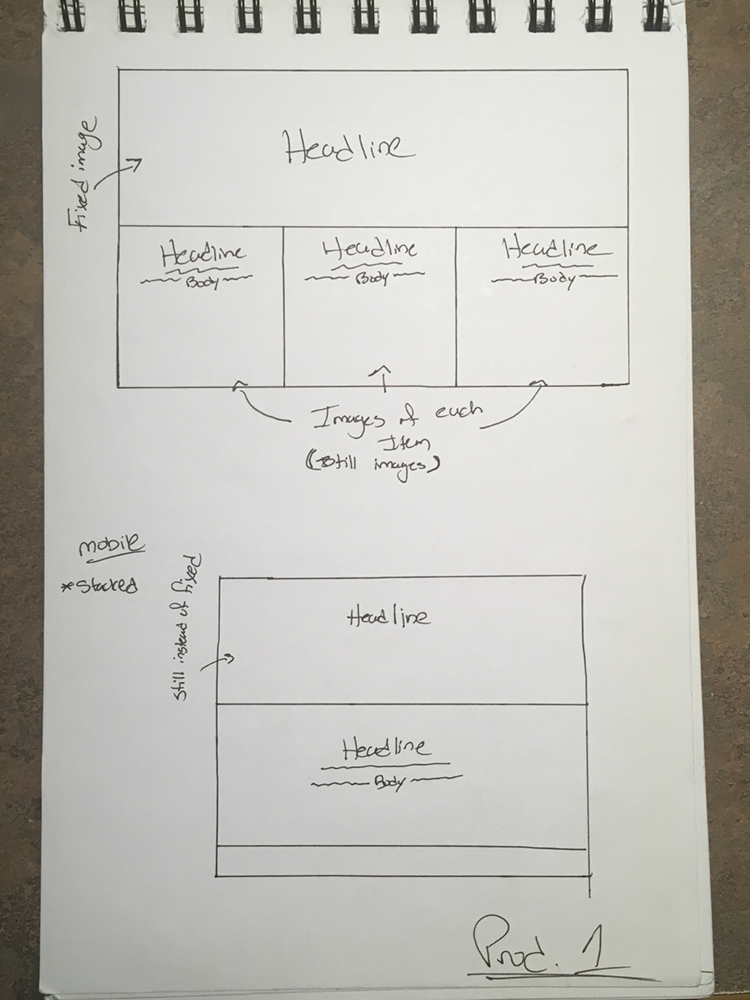 Fixed image
Headline
Headline
Body
Headline
Body
Headline
Body
Images of each
Item
(Still images)
mobile
*Stacked
Still instead of fixed
Headline
Headline
Body
Prod. 1